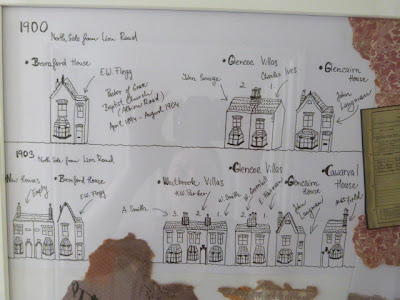 1900
North Side from Lion Road
• Bransford House
E.W. Flegg
Pastor of Grove
Baptist Church
(Albion Road)
April 1894 - August 1904
• Glencoe Villas
2. 1.
John Savage
Charles Ives
• Glencairn
House
John
1903 North Side from Lion Road
New Houses
Empty
• Bransford House
E.W. Flegg
• Walbrook Villas
H.W. Parker
A. Smith
3. 2. 1.
W. Smith
• Glencoe Villas
2. 1.
• Glencairn
House
John
House